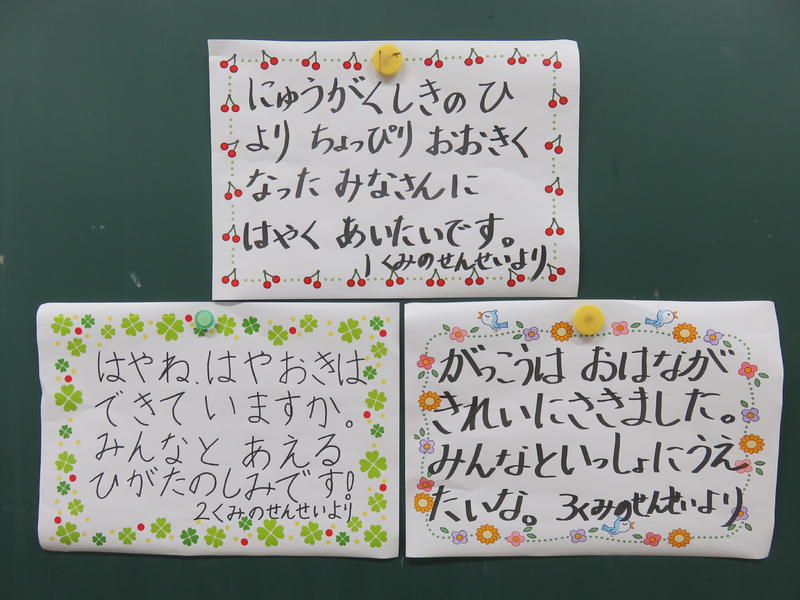 にゅうがくしきの ひ
より ちょっぴり おおきく
なった みなさんに
はやく あいたいです。
1くみのせんせいより
はやね、はやおきは
できて いますか。
みんなと あえる
ひがたのしみです!
2くみのせんせいより
がっこうは おはなが
きれいにさきました。
みんなといっしょにうえ
たいな。 3くみのせんせいより